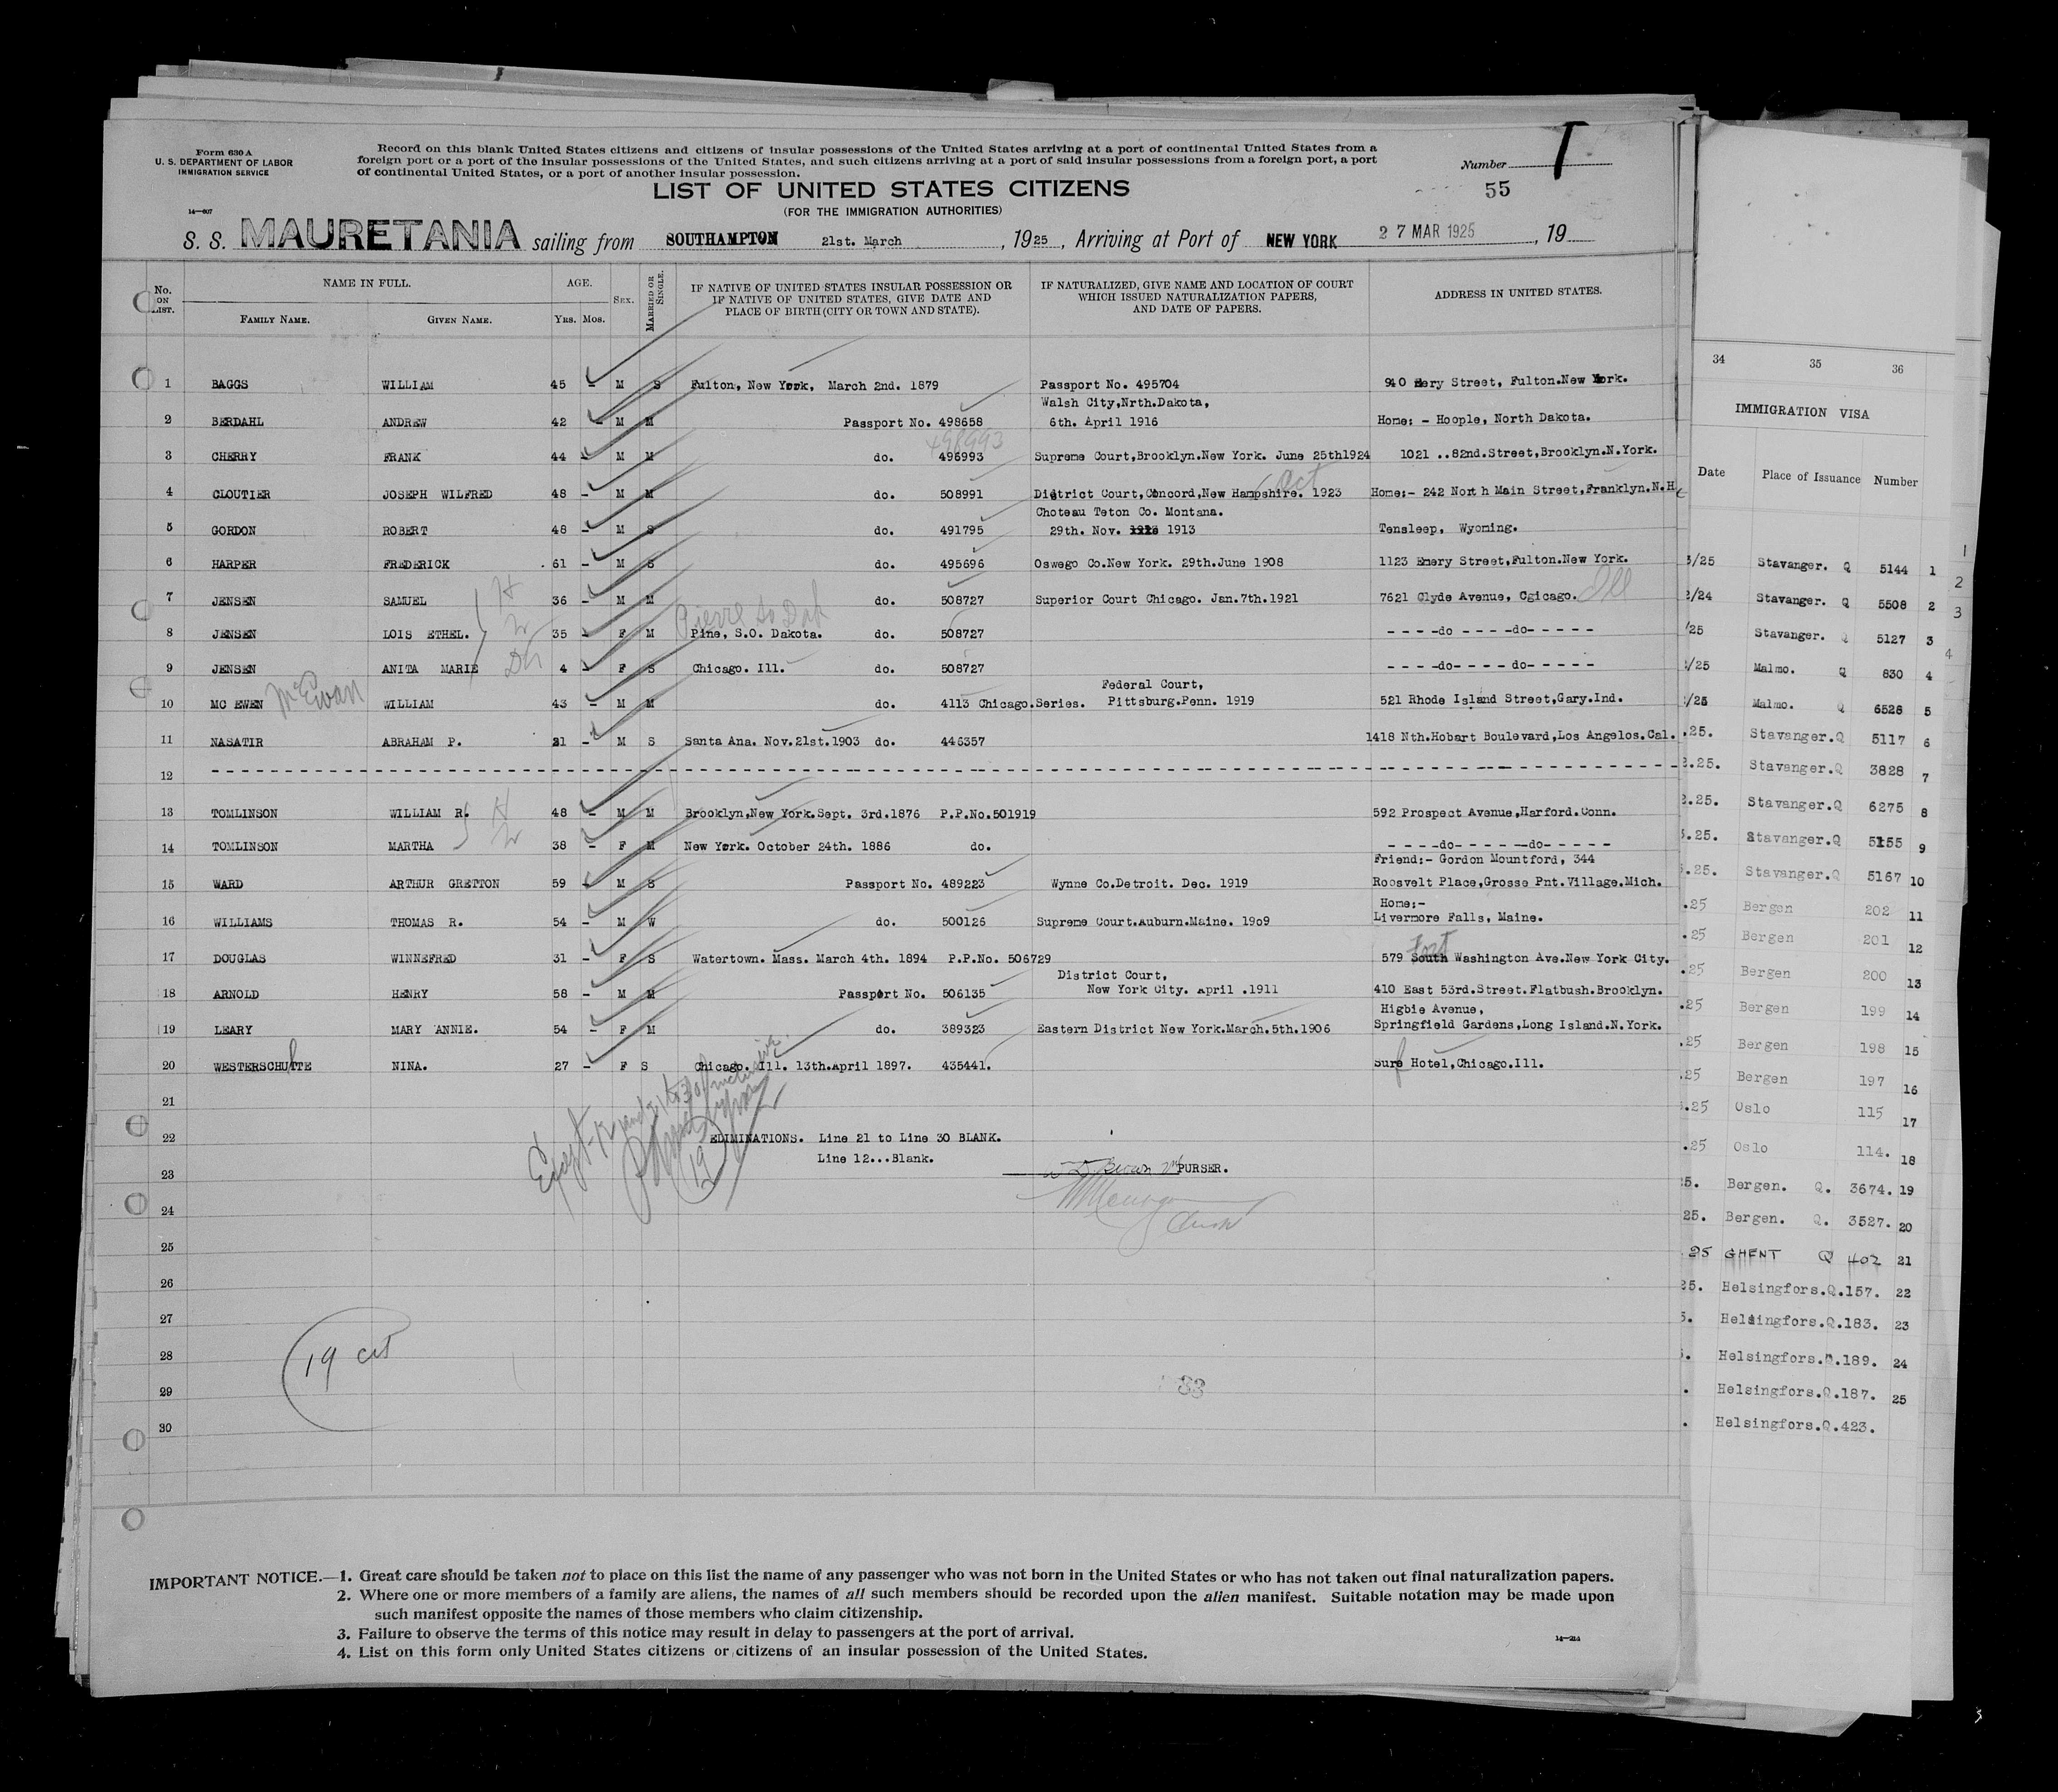 Form 630 A
U. S. DEPARTMENT OF LABOR
IMMIGRATION SERVICE
Record on this blank United States citizens and citizens of insular possessions of the United States arriving at a port of continental United States from a
foreign port or a port of the insular possessions of the United States, and such citizens arriving at a port of said insular possessions from a foreign port, a port
of continental United States, or a port of another insular possession.
Number
55
LIST OF UNITED STATES CITIZENS
(FOR THE IMMIGRATION AUTHORITIES)
14—607
S. S. MAURETANIA sailing from SOUTHAMPTON 21st. March, 1925, Arriving at Port of NEW YORK 27 MAR 1925, 19
No. ON LIST. NAME IN FULL. FAMILY NAME. GIVEN NAME. AGE. Yrs. Mos. Sex. MARRIED OR SINGLE. IF NATIVE OF UNITED STATES INSULAR POSSESSION OR IF NATIVE OF UNITED STATES, GIVE DATE AND PLACE OF BIRTH (CITY OR TOWN AND STATE). IF NATURALIZED, GIVE NAME AND LOCATION OF COURT WHICH ISSUED NATURALIZATION PAPERS, AND DATE OF PAPERS. ADDRESS IN UNITED STATES.
1 BAGGS WILLIAM 45 - M S Fulton, New York, March 2nd. 1879 Passport No. 495704 940 Emery Street, Fulton.New York.
Walsh City,Nrth.Dakota,
2 BERDAHL ANDREW 42 - M M Passport No. 498658 6th. April 1916 Home: - Hoople, North Dakota.
498993
3 CHERRY FRANK 44 - M M do. 496993 Supreme Court,Brooklyn.New York. June 25th1924 1021 ..82nd.Street,Brooklyn.N.York.
Oct
4 CLOUTIER JOSEPH WILFRED 48 - M M do. 508991 District Court,Concord,New Hampshire. 1923 Home:- 242 North Main Street,Franklyn.N.H
Choteau Teton Co. Montana.
5 GORDON ROBERT 48 - M S do. 491795 29th. Nov. 1913 Tensleep, Wyoming.
6 HARPER FREDERICK 61 - M S do. 495696 Oswego Co.New York. 29th.June 1908 1123 Emery Street,Fulton.New York.
7 JENSEN SAMUEL H 36 - M M do. 508727 Superior Court Chicago. Jan.7th.1921 7621 Clyde Avenue, Cgicago. Ill
Pierre So Dak
8 JENSEN LOIS ETHEL. W 35 - F M Pine, S.O. Dakota. do. 508727 - - - -do - - - -do- - - - -
9 JENSEN ANITA MARIE 4 - F S Chicago. Ill. do. 508727 - - - -do- - - - do- - - - -
Federal Court,
10 MC EWEN McEwan WILLIAM 43 - M M do. 4113 Chicago.Series. Pittsburg.Penn. 1919 521 Rhode Island Street,Gary.Ind.
11 NASATIR ABRAHAM P. 21 - M S Santa Ana. Nov.21st.1903 do. 446357 1418 Nth.Hobart Boulevard,Los Angelos.Cal.
12 - - - - - - - - - - - - - - - - - - - - - - - -
13 TOMLINSON WILLIAM R. H 48 - M M Brooklyn,New York.Sept. 3rd.1876 P.P.No.501919 592 Prospect Avenue,Harford.Conn.
14 TOMLINSON MARTHA W 38 - F M New York. October 24th. 1886 do. - - - -do- - - - - -do- - - - -
Friend:- Gordon Mountford, 344
15 WARD ARTHUR GRETTON 59 - M S Passport No. 489223 Wynne Co.Detroit. Dec. 1919 Roosvelt Place,Grosse Pnt.Village.Mich.
Home:-
16 WILLIAMS THOMAS R. 54 - M W do. 500126 Supreme Court.Auburn.Maine. 1909 Livermore Falls, Maine.
Fort
17 DOUGLAS WINNEFRED 31 - F S Watertown. Mass. March 4th. 1894 P.P.No. 506729 579 South Washington Ave.New York City.
District Court,
18 ARNOLD HENRY 58 - M M Passport No. 506135 New York City. April .1911 410 East 53rd.Street.Flatbush.Brooklyn.
Higbie Avenue,
19 LEARY MARY ANNIE. 54 - F M do. 389323 Eastern District New York.March.5th.1906 Springfield Gardens,Long Island.N.York.
20 WESTERSCHULTE NINA. 27 - F S Chicago. Ill. 13th.April 1897. 435441. Surf Hotel,Chicago.Ill.
21
Except 12 and 21 to 30 inclusive.
(19)
22 ELIMINATIONS. Line 21 to Line 30 BLANK.
Line 12...Blank.
23 PURSER.
24
25
26
27
28 19 cit
29 33
30
IMPORTANT NOTICE.—1. Great care should be taken not to place on this list the name of any passenger who was not born in the United States or who has not taken out final naturalization papers.
2. Where one or more members of a family are aliens, the names of all such members should be recorded upon the alien manifest. Suitable notation may be made upon
such manifest opposite the names of those members who claim citizenship.
3. Failure to observe the terms of this notice may result in delay to passengers at the port of arrival.
4. List on this form only United States citizens or citizens of an insular possession of the United States.
14—214
34 35 36
IMMIGRATION VISA
Date Place of Issuance Number
3/25 Stavanger. Q 5144 1
2/24 Stavanger. Q 5508 2
/25 Stavanger. Q 5127 3
/25 Malmo. Q 830 4
/25 Malmo. Q 6526 5
.25. Stavanger.Q 5117 6
2.25. Stavanger.Q 3828 7
2.25. Stavanger.Q 6275 8
.25. Stavanger.Q 5155 9
.25. Stavanger.Q 5167 10
.25 Bergen 202 11
.25 Bergen 201 12
.25 Bergen 200 13
.25 Bergen 199 14
.25 Bergen 198 15
.25 Bergen 197 16
.25 Oslo 115 17
.25 Oslo 114. 18
25. Bergen. Q. 3674. 19
25. Bergen. Q. 3527. 20
25 GHENT Q 402 21
25. Helsingfors.Q.157. 22
Helsingfors.Q.183. 23
Helsingfors.Q.189. 24
Helsingfors.Q.187. 25
Helsingfors.Q.423.
1
2
3
4